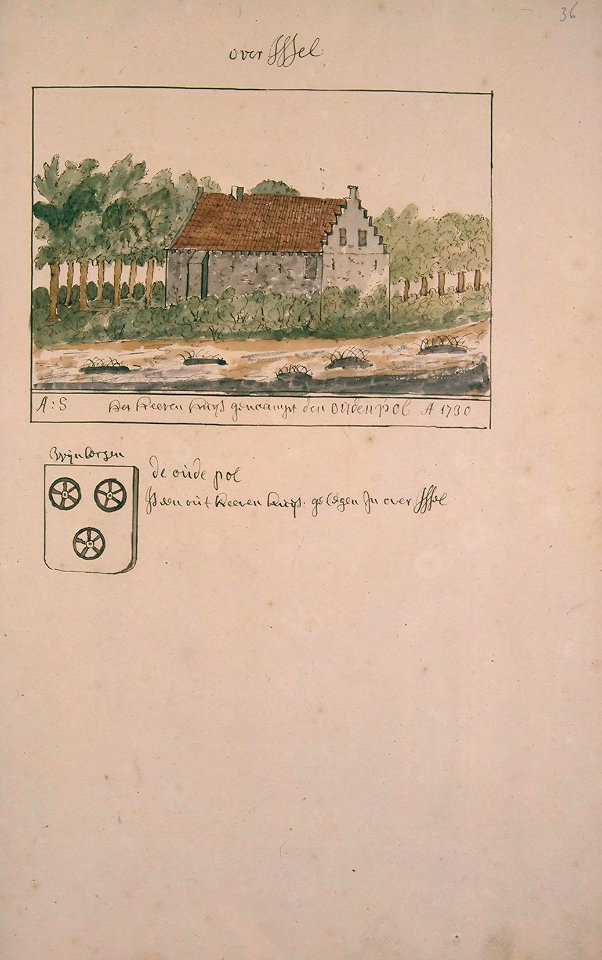 36
over Issel
A : S Het Heeren Huijs genaamt den ouden pol A 1730
de oude pol
Is een out Heeren Huijs : gelegen In over Issel